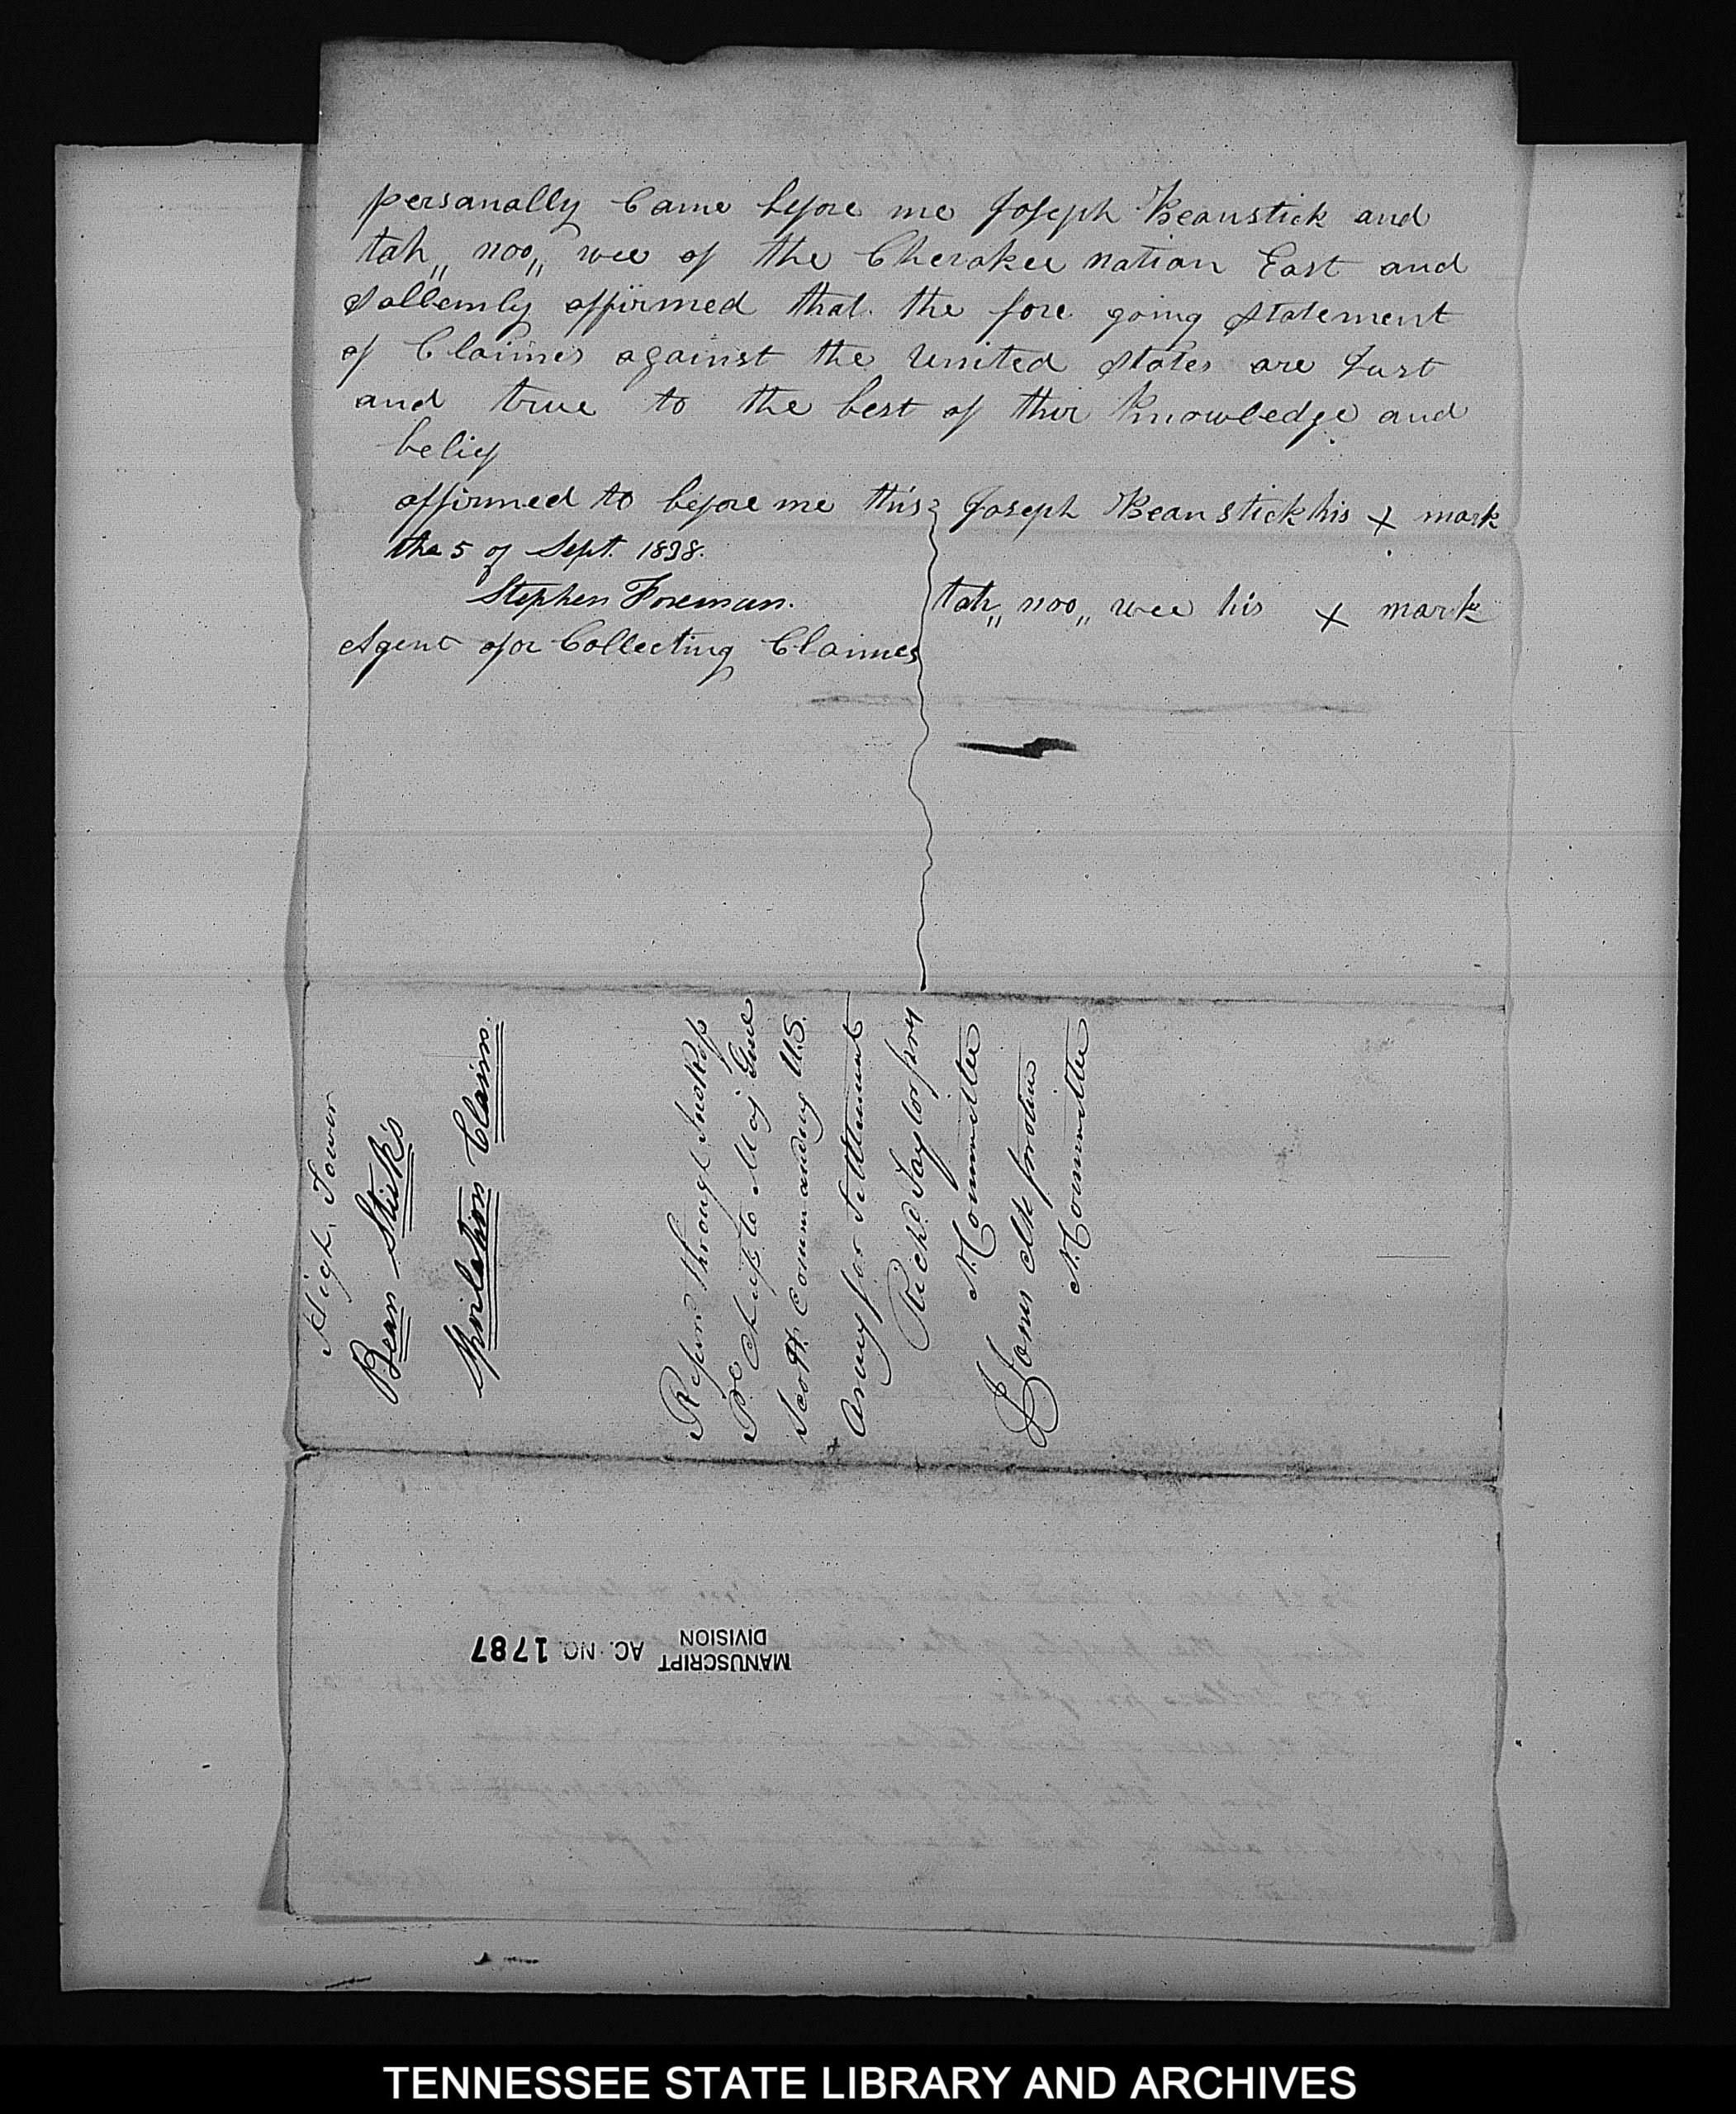 personally Came before me Joseph Beanstick and
tah,, noo,, wee of the Cherokee nation East and
Sollemly affirmed that the fore going Statement
of Claimes against the United States are Just
and true to the best of thir Knowledge and
belief
affirmed to before me this
the 5 of Sept. 1838.
Stephen Foreman.
Agent for Collecting Claimes
Joseph Beanstick his x mark
tah,, noo,, wee his x mark
High Tower
Bean Stick's
Spoilation Claims.
through
to Maj Genl
Scott Commanding U.S.
Army for settlement
Richd Taylor prest
N. Committee
N. Committee
MANUSCRIPT
DIVISION
AC. NO. 1787
TENNESSEE STATE LIBRARY AND ARCHIVES